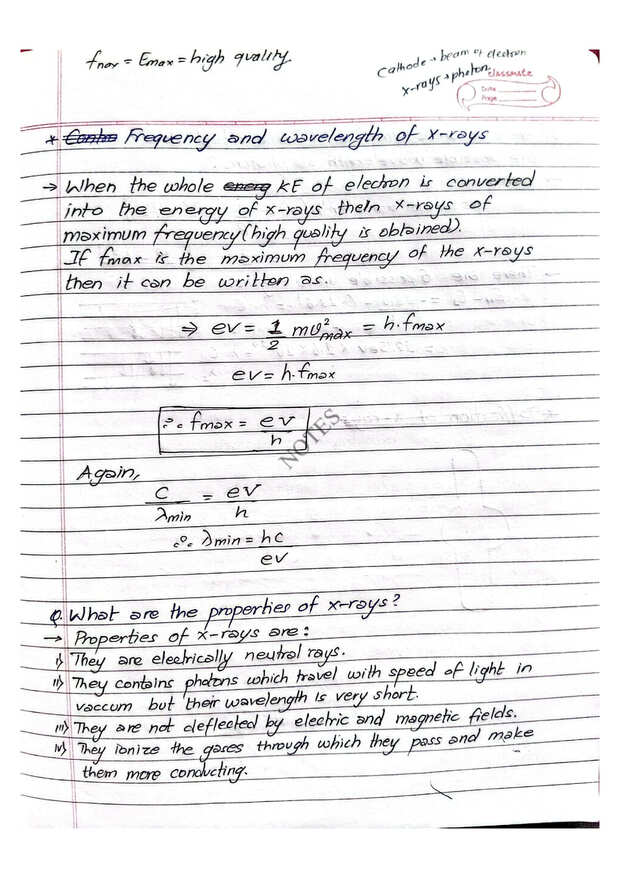 fmax = Emax = high quality.
Cathode → beam of electron
x-rays → photon
classmate
Date
Page
* Conti̶n̶ Frequency and wavelength of x-rays
→ When the whole energ KE of electron is converted
into the energy of x-rays then x-rays of
maximum frequency (high quality is obtained).
If fmax is the maximum frequency of the x-rays
then it can be written as.
⇒ ev = 1/2 mv²max = h.fmax
ev = h.fmax
∴ fmax = ev/h
NOTES
Again,
c/λmin = ev/h
∴ λmin = hc/ev
Q. What are the properties of x-rays?
→ Properties of x-rays are:
i) They are electrically neutral rays.
ii) They contains photons which travel with speed of light in
vaccum but their wavelength is very short.
iii) They are not deflected by electric and magnetic fields.
iv) They ionize the gases through which they pass and make
them more conducting.